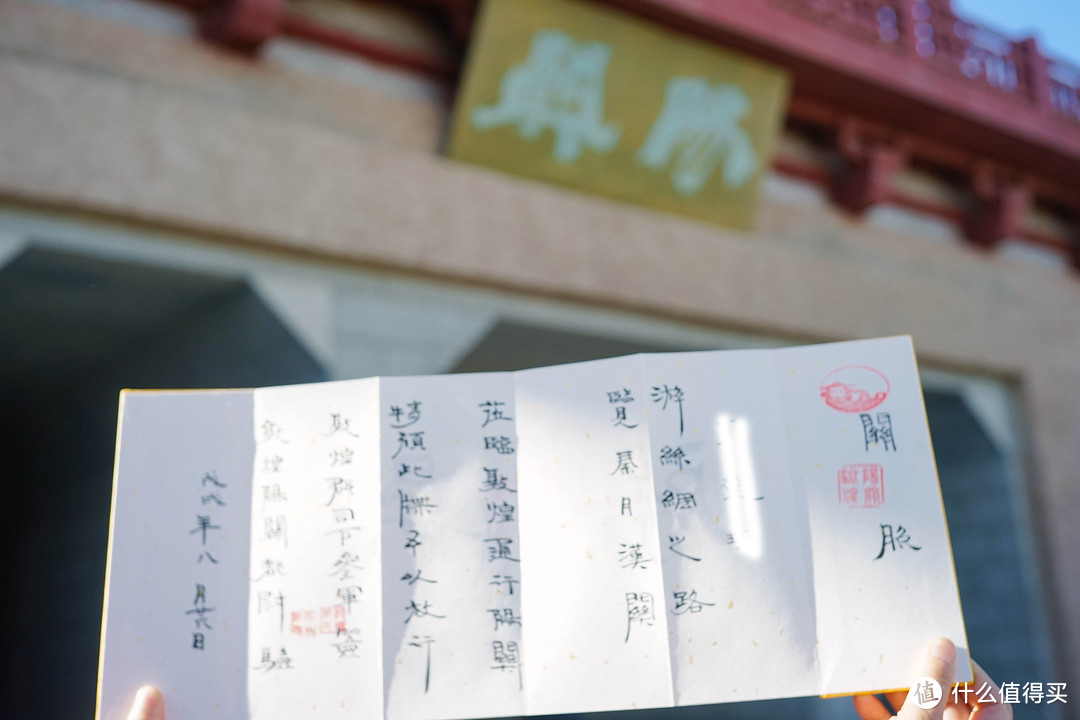 陽關
關照
游絲綢之路
覽秦月漢關
莅臨敦煌通行陽關
特頒此牒予以放行
敦煌郡司下參軍簽
敦煌陽關都尉驗
戊戌年八月日
值 什么值得买